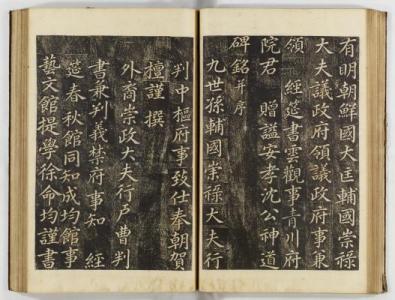 有明朝鮮國大匡輔國崇祿
大夫議政府領議政府事兼
領 經筵書雲觀事青川府
院君 贈謚安孝沈公神道
碑銘并序
九世孫輔國崇祿大夫行
判中樞府事致仕奉朝賀
檀謹 撰
外裔崇政大夫行戶曹判
書兼判義禁府事知 經
筵春秋館同知成均館事
藝文館提學徐命均謹書